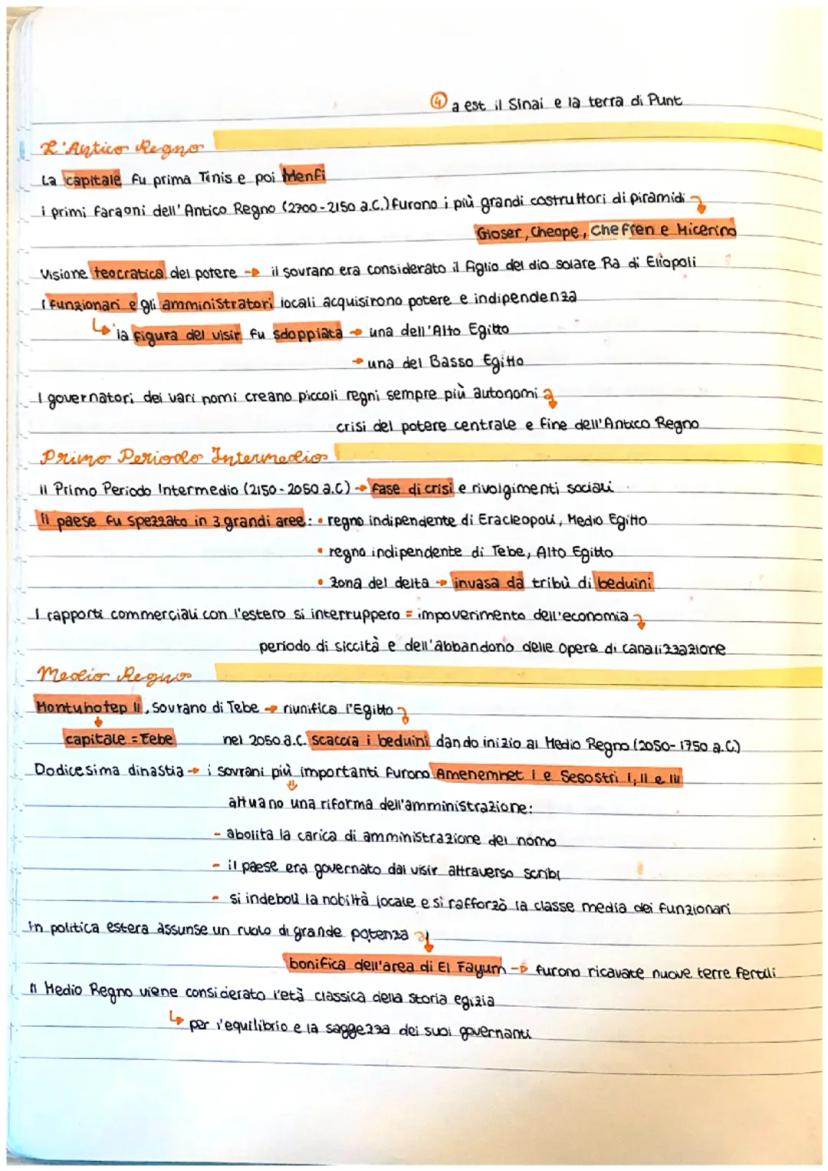 ④ a est il Sinai e la terra di Punt
L'Antico Regno
La capitale fu prima Tinis e poi Menfi
i primi faraoni dell'Antico Regno (2700-2150 a.C.) furono i più grandi costruttori di piramidi
Gioser, Cheope, Cheffren e Micerino
Visione teocratica del potere → il sovrano era considerato il figlio del dio solare Ra di Eliopoli
I funzionari e gli amministratori locali acquisirono potere e indipendenza
↳ la figura del visir fu sdoppiata → una dell'Alto Egitto
→ una del Basso Egitto
I governatori dei vari nomi creano piccoli regni sempre più autonomi
crisi del potere centrale e fine dell'Antico Regno
Primo Periodo Intermedio
Il Primo Periodo Intermedio (2150-2050 a.C) → fase di crisi e rivolgimenti sociali
Il paese fu spezzato in 3 grandi aree: • regno indipendente di Eracleopoli, Medio Egitto
• regno indipendente di Tebe, Alto Egitto
• zona del delta → invasa da tribù di beduini
I rapporti commerciali con l'estero si interruppero = impoverimento dell'economia
periodo di siccità e dell'abbandono delle opere di canalizzazione
Medio Regno
Montuhotep II, sovrano di Tebe → riunifica l'Egitto
capitale = Tebe nel 2050 a.C. scaccia i beduini dando inizio al Medio Regno (2050-1750 a.C.)
Dodicesima dinastia → i sovrani più importanti furono Amenemhet I e Sesostri I, II e III
attuano una riforma dell'amministrazione:
- abolita la carica di amministrazione del nomo
- il paese era governato dal visir attraverso scribi
- si indebolì la nobiltà locale e si rafforzò la classe media dei funzionari
In politica estera assunse un ruolo di grande potenza
bonifica dell'area di El Fayum → furono ricavate nuove terre fertili
Il Medio Regno viene considerato l'età classica della storia egizia
↳ per l'equilibrio e la saggezza dei suoi governanti